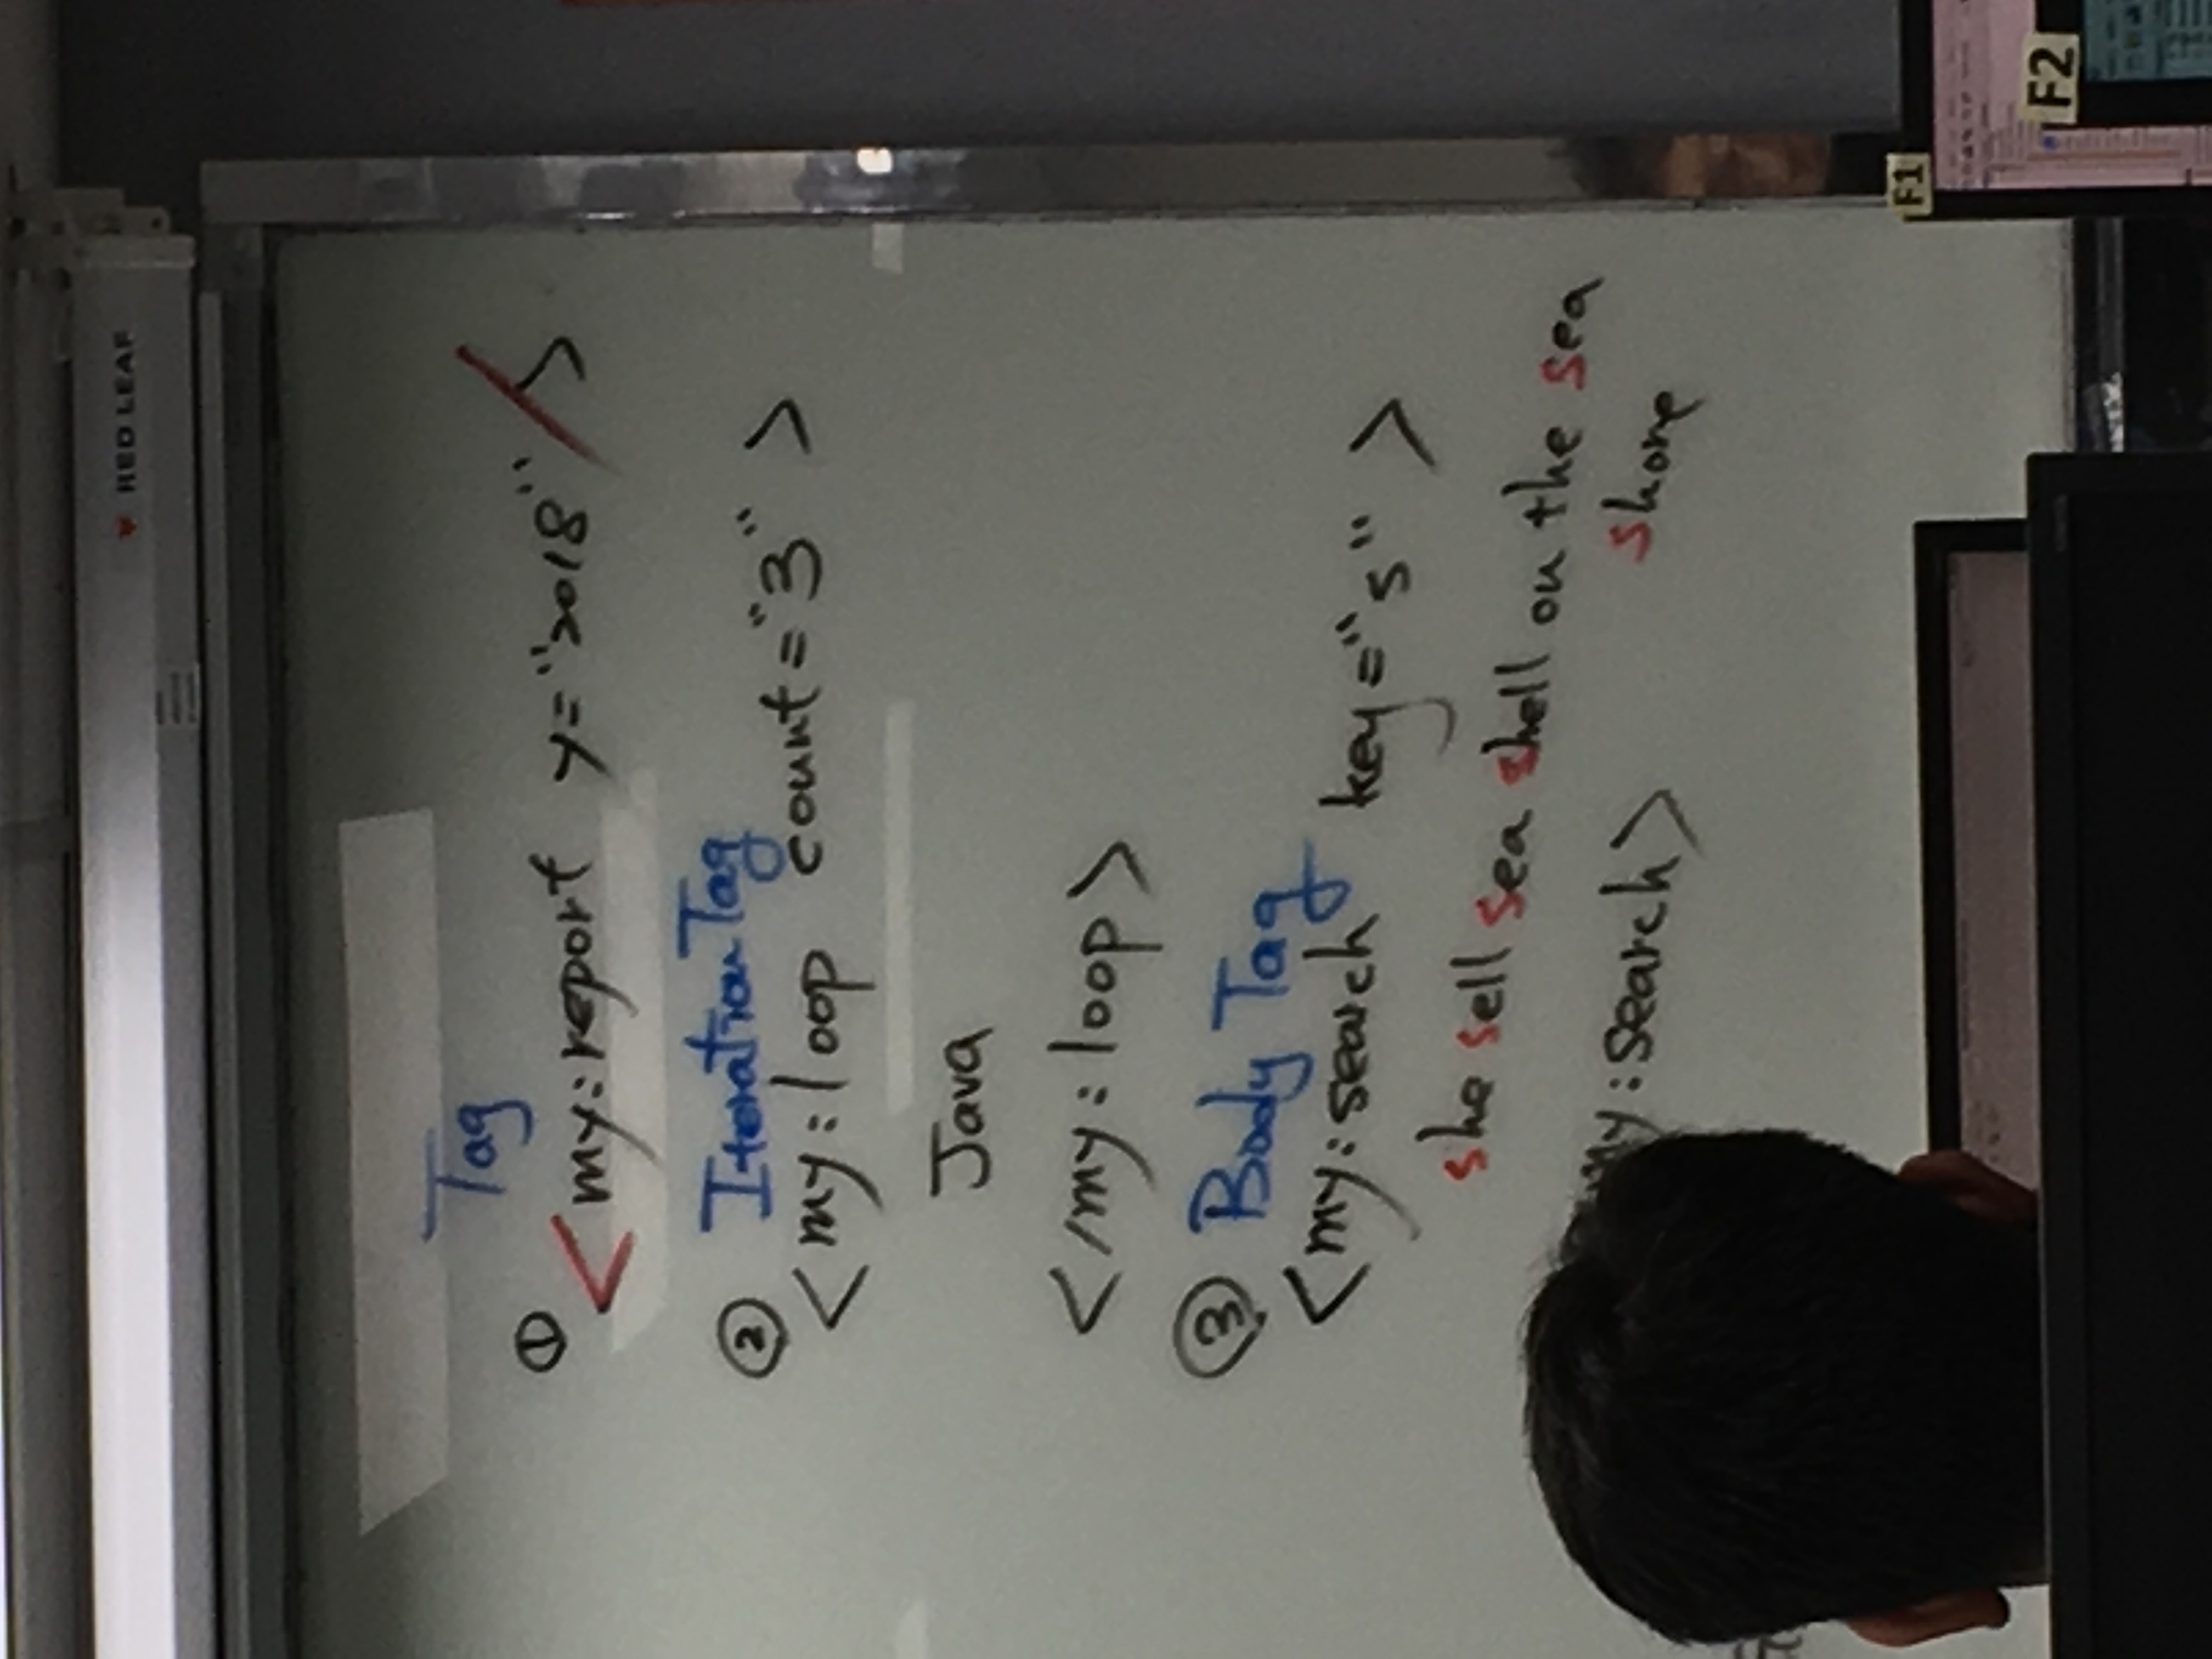 RED LEAF
Tag
①
<my:report y="2018"/>
② IterationTag
<my:loop count="3">
Java
</my:loop>
③ Body Tag
<my:search key="s">
she sell sea shell on the sea
shore
my:search>
F1
F2